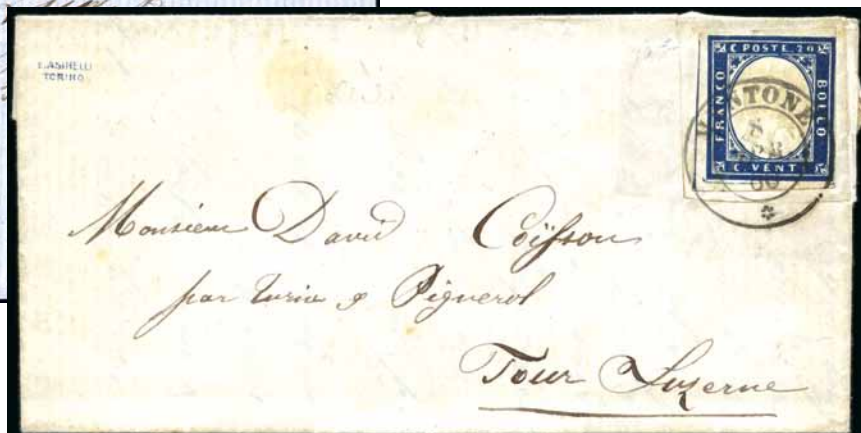 TORINO
C. POSTE 20
FRANCO
BOLLO
C. VENTI
8
60
Monsieur David Coïsson
par Turin & Pignerol
Tour Luzerne